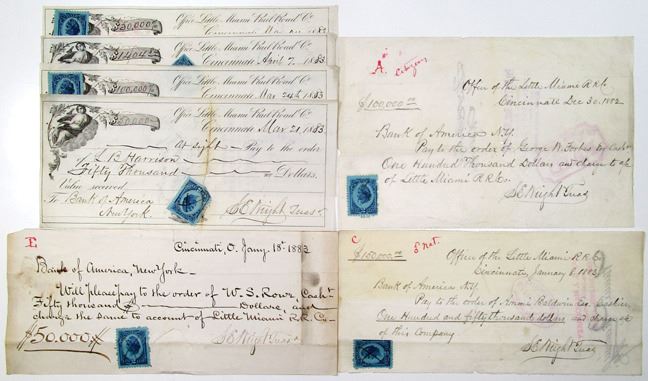 Office Little Miami Rail Road Co
$50,000
1883
Office Little Miami Rail Road Co
Cincinnati April 7, 1883
Office Little Miami Rail Road Co
$100,000
Cincinnati Mar 24th 1883
Office Little Miami Rail Road Co
$50,000
Cincinnati Mar 21 1883
At sight Pay to the order
of L B Harrison
Fifty Thousand Dollars
Value received
To Bank of America
New York.
S E Wright Treas
A.
Citizens
Office of the Little Miami R R Co
$100,000
Cincinnati Dec 30, 1882
Bank of America N.Y.
Pay to the order of George W. Forbes Cash
One Hundred Thousand Dollars and charge to a/c
of Little Miami R R Co.
S E Wright Treas
E
Cincinnati, O. Jany. 18th 1883
Bank of America New York
Will please pay to the order of W. S. Rowe, Cash
Fifty thousand Dollars, and
charge the same to account of Little Miami R.R. Co
$50.000
S E Wright Treas
C
Nat.
$150,000
Office of the Little Miami R R Co
Cincinnati, January 8, 1883
Bank of America N.Y.
Pay to the order of Baldwin Cashier
One Hundred and fifty thousand dollars and charge
of this Company
S E Wright Treas